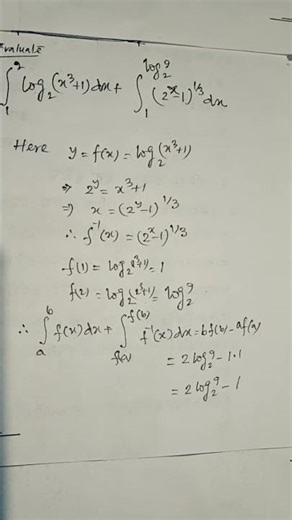 Evaluate
∫₁² log₂(x³+1)dx + ∫₁^{log₂9} (2ˣ-1)^{1/3} dx
Here y = f(x) = log₂(x³+1)
⇒ 2^y = x³+1
⇒ x = (2^y-1)^{1/3}
∴ f⁻¹(x) = (2ˣ-1)^{1/3}
f(1) = log₂(1³+1) = 1
f(2) = log₂(2³+1) = log₂9
∴ ∫ₐᵇ f(x)dx + ∫_{f(a)}^{f(b)} f⁻¹(x)dx = bf(b) - af(a)
= 2log₂9 - 1·1
= 2log₂9 - 1